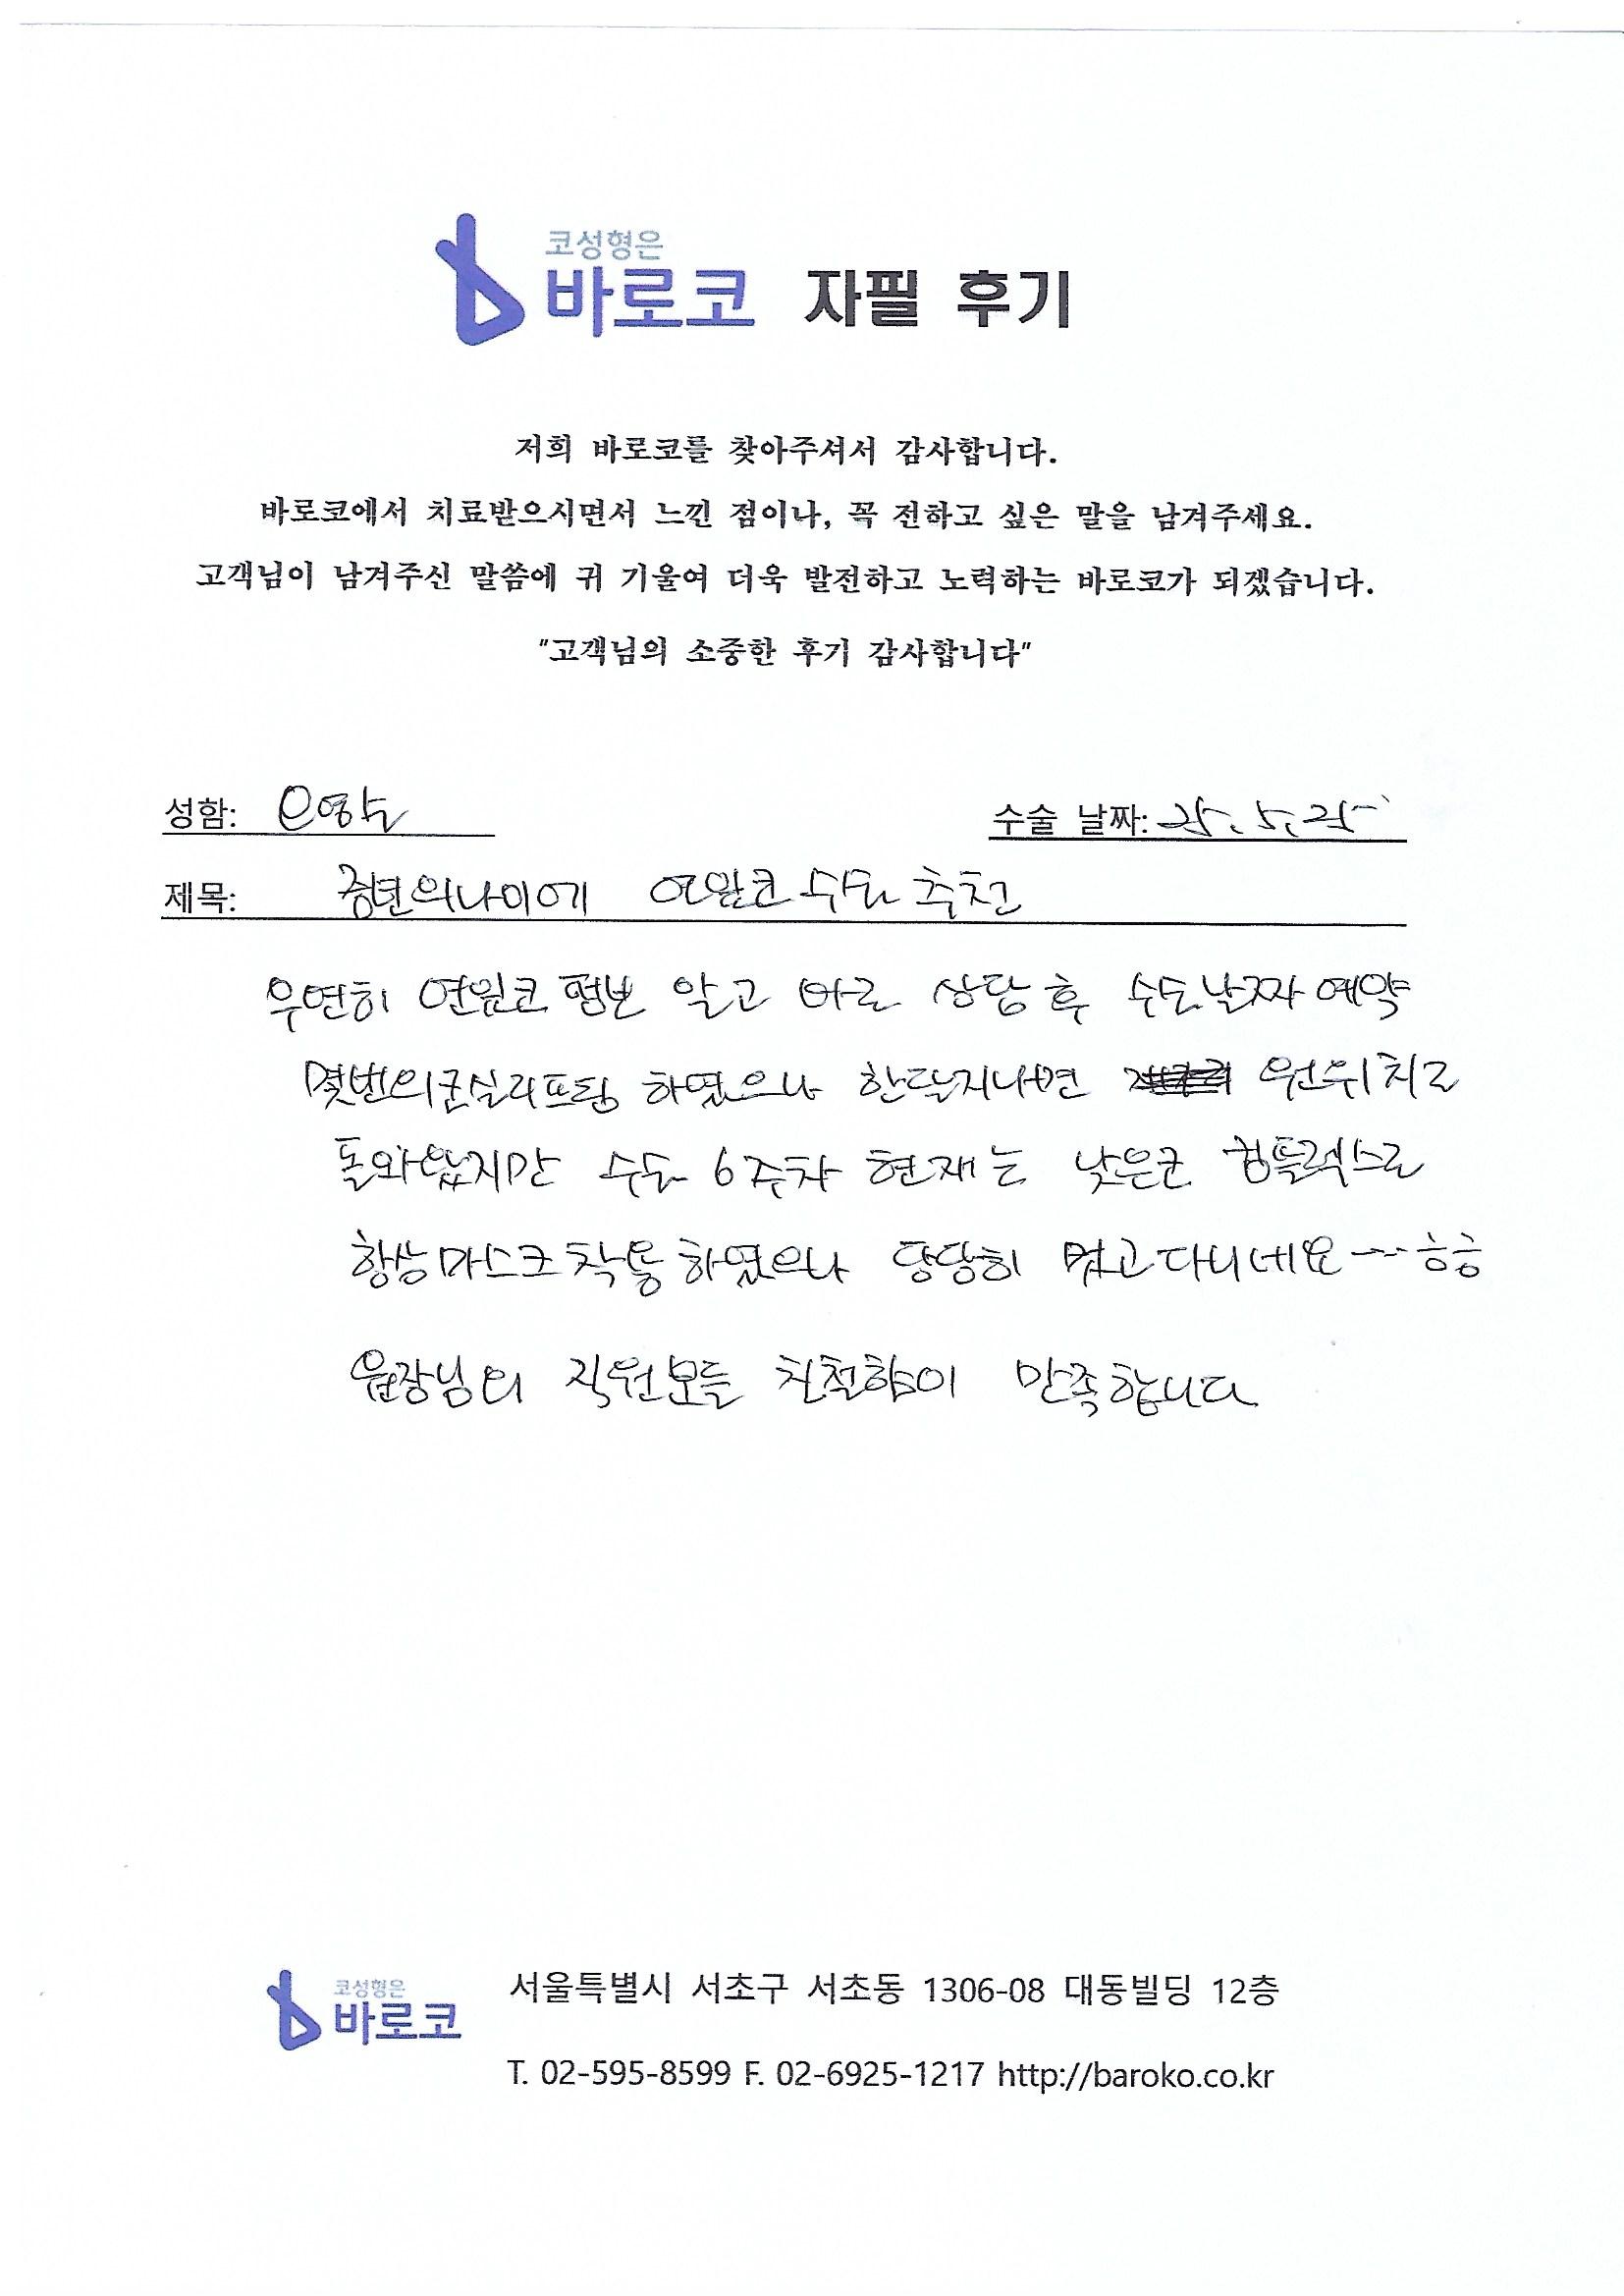 코성형은
바로코 자필 후기
저희 바로코를 찾아주셔서 감사합니다.
바로코에서 치료받으시면서 느낀 점이나, 꼭 전하고 싶은 말을 남겨주세요.
고객님이 남겨주신 말씀에 귀 기울여 더욱 발전하고 노력하는 바로코가 되겠습니다.
"고객님의 소중한 후기 감사합니다"
성함: 은영숙 수술 날짜: 25. 5. 25
제목: 중년의나이에 수술 추천
우연히 알고 바로 상담 후 수술날짜 예약
몇번의코실리프팅 하였으나 한달지나면 원위치로
돌와왔지만 수술 6주차 현재는 낮은코 컴플렉스로
항상마스크착용하였으나 당당히 벗고다니네요 ㅎㅎ
원장님외 직원모들 친절함이 만족합니다
코성형은
바로코
서울특별시 서초구 서초동 1306-08 대동빌딩 12층
T. 02-595-8599 F. 02-6925-1217 http://baroko.co.kr